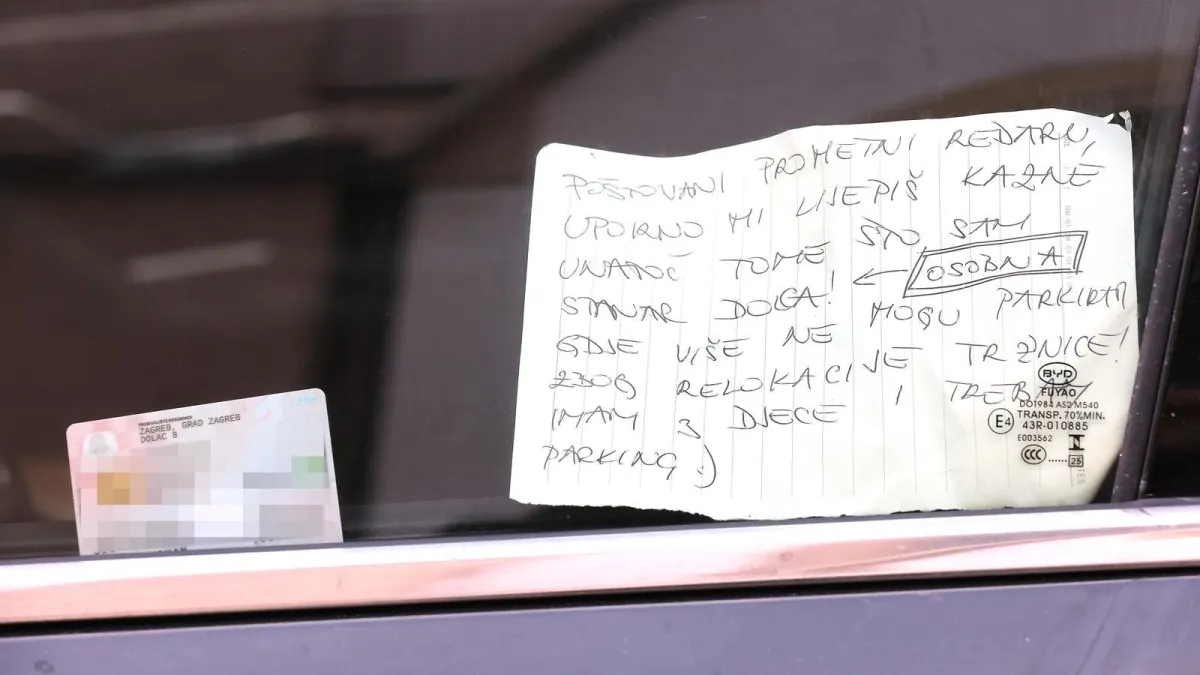 ZAGREB, GRAD ZAGREB
DOLAC 8
POŠTOVANI PROMETNI REDARU,
UPORNO MI LIJEPIŠ KAZNE
UNATOČ TOME ŠTO SAM
STANAR DOLCA! ← OSOBNA
GDJE VIŠE NE MOGU PARKIRATI
ZBOG RELOKACIJE TRŽNICE!
IMAM 3 DJECE I TREBAM
PARKING :)
BYD
FUYAO
DOT984 AS2 M540
TRANSP. 70%MIN.
E4 43R-010885
E003562
CCC ...... 25